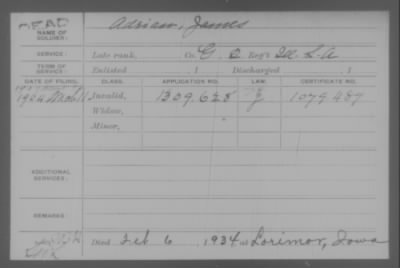 DEAD
NAME OF SOLDIER: Adrian, James
SERVICE: Late rank, Co. G, 2 Reg't Ill. L-A
TERM OF SERVICE: Enlisted , 1 Discharged , 1
DATE OF FILING. CLASS. APPLICATION NO. LAW. CERTIFICATE NO.
1904 Mch 11 Invalid, 1309.628 1079.487
Widow,
Minor,
ADDITIONAL SERVICES:
REMARKS:
Died Feb 6, 1934 at Lorimor, Iowa